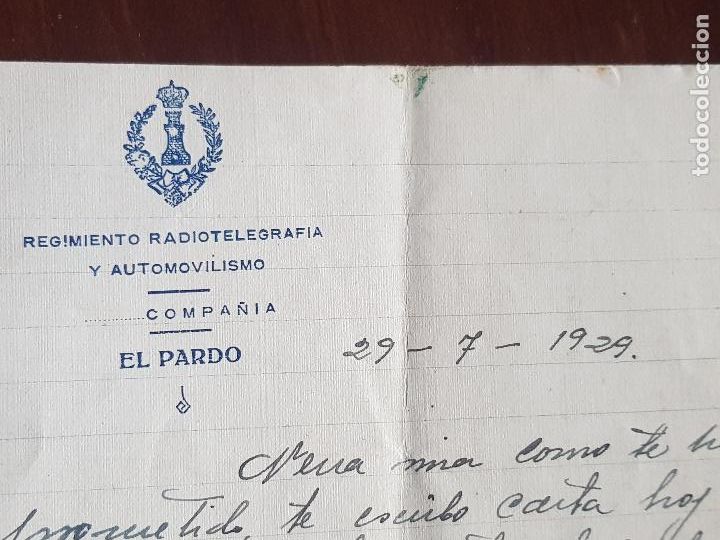 REGIMIENTO RADIOTELEGRAFIA
Y AUTOMOVILISMO
COMPAÑIA
EL PARDO
29 - 7 - 1929.
Nena mia como te h
prometido, te escribo carta hoy
todocoleccion